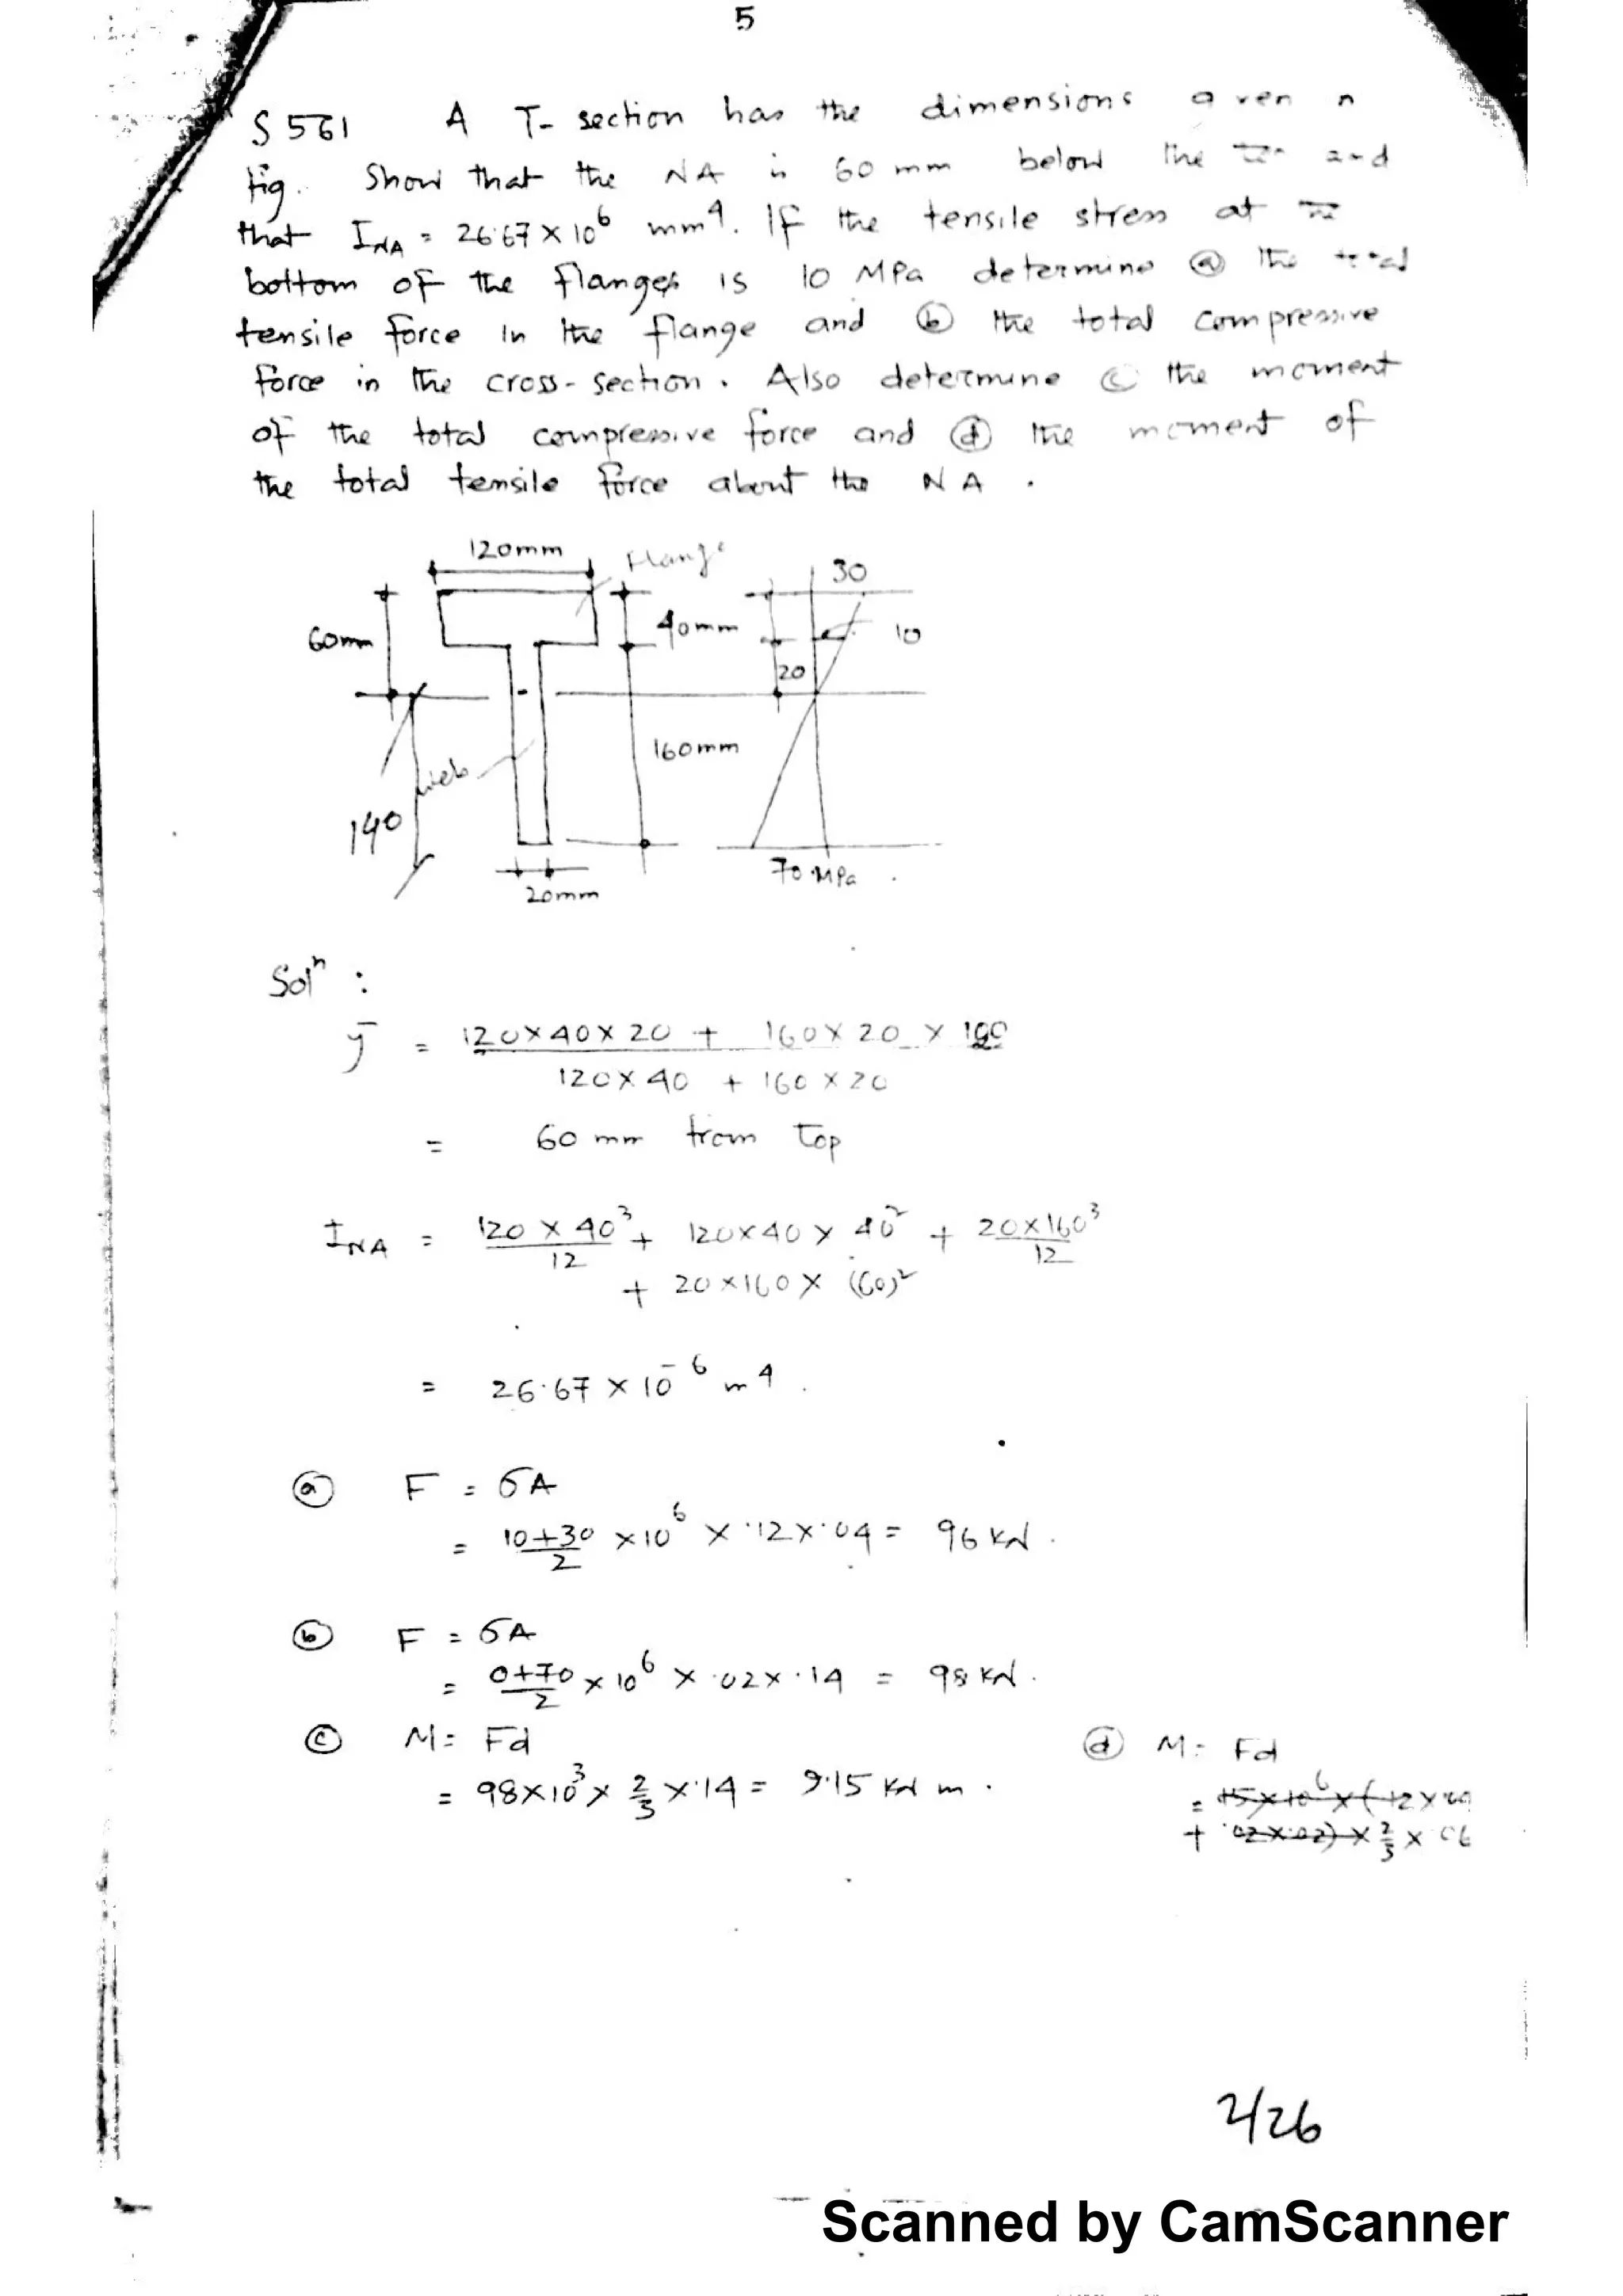 5
S 561 A T- section has the dimensions given in
fig. Show that the NA is 60 mm below the and
that INA = 26.67 × 10⁶ mm⁴. If the tensile stress at
bottom of the flanges is 10 MPa determine ⓐ the total
tensile force in the flange and ⓑ the total compressive
force in the cross-section. Also determine ⓒ the moment
of the total compressive force and ⓓ the moment of
the total tensile force about the NA.
120mm Flange 30
60mm 40mm 10
20
160mm
web
140
70 MPa
20mm
Solⁿ :
ȳ = 120×40×20 + 160×20×100
120×40 + 160×20
= 60 mm from top
INA = 120×40³/12 + 120×40×40² + 20×160³/12
+ 20×160×(60)²
= 26.67×10⁻⁶ m⁴.
ⓐ F = σA
= 10+30/2 ×10⁶ × .12×.04 = 96 kN.
ⓑ F = σA
= 0+70/2 ×10⁶ × .02×.14 = 98 kN.
ⓒ M = Fd ⓓ M = Fd
= 98×10³× 2/3 ×.14 = 9.15 kN m. = 15×10⁶×(.12×.04
+ .02×.02)× 2/3 × .06
2/26
Scanned by CamScanner